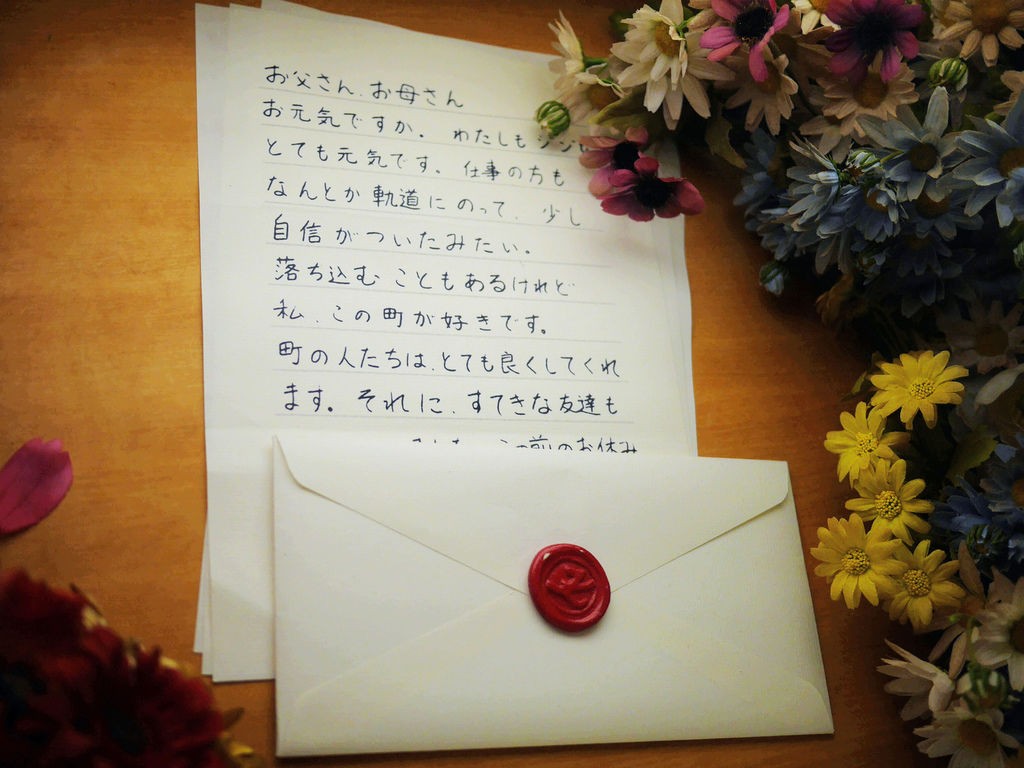 お父さん、お母さん
お元気ですか。わたしもジジも
とても元気です。仕事の方も
なんとか軌道にのって、少し
自信がついたみたい。
落ち込むこともあるけれど
私、この町が好きです。
町の人たちは、とても良くしてくれ
ます。それに、すてきな友達も
この前のお休み